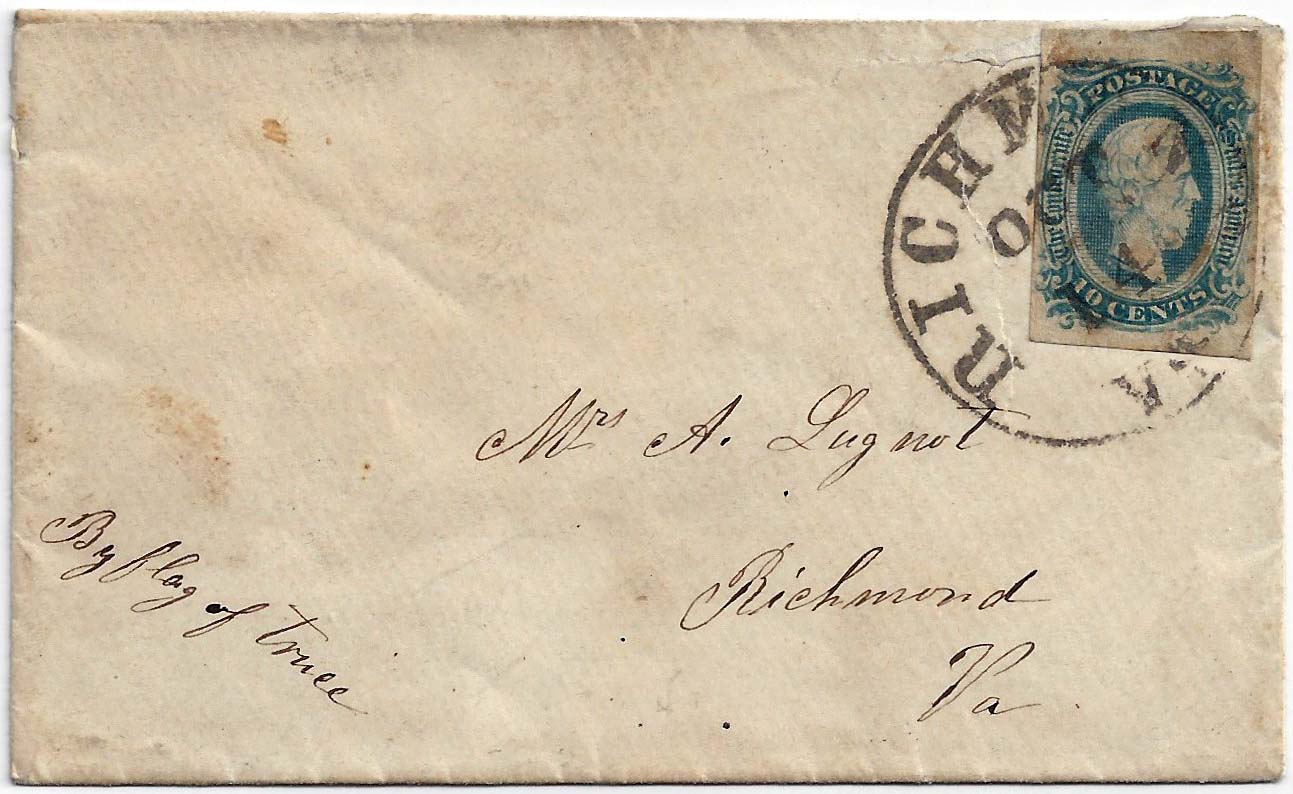 POSTAGE
The Confederate States of America
10 CENTS
RICHM
VA
Mrs A. Lugnot
Richmond
Va
By flag of truce